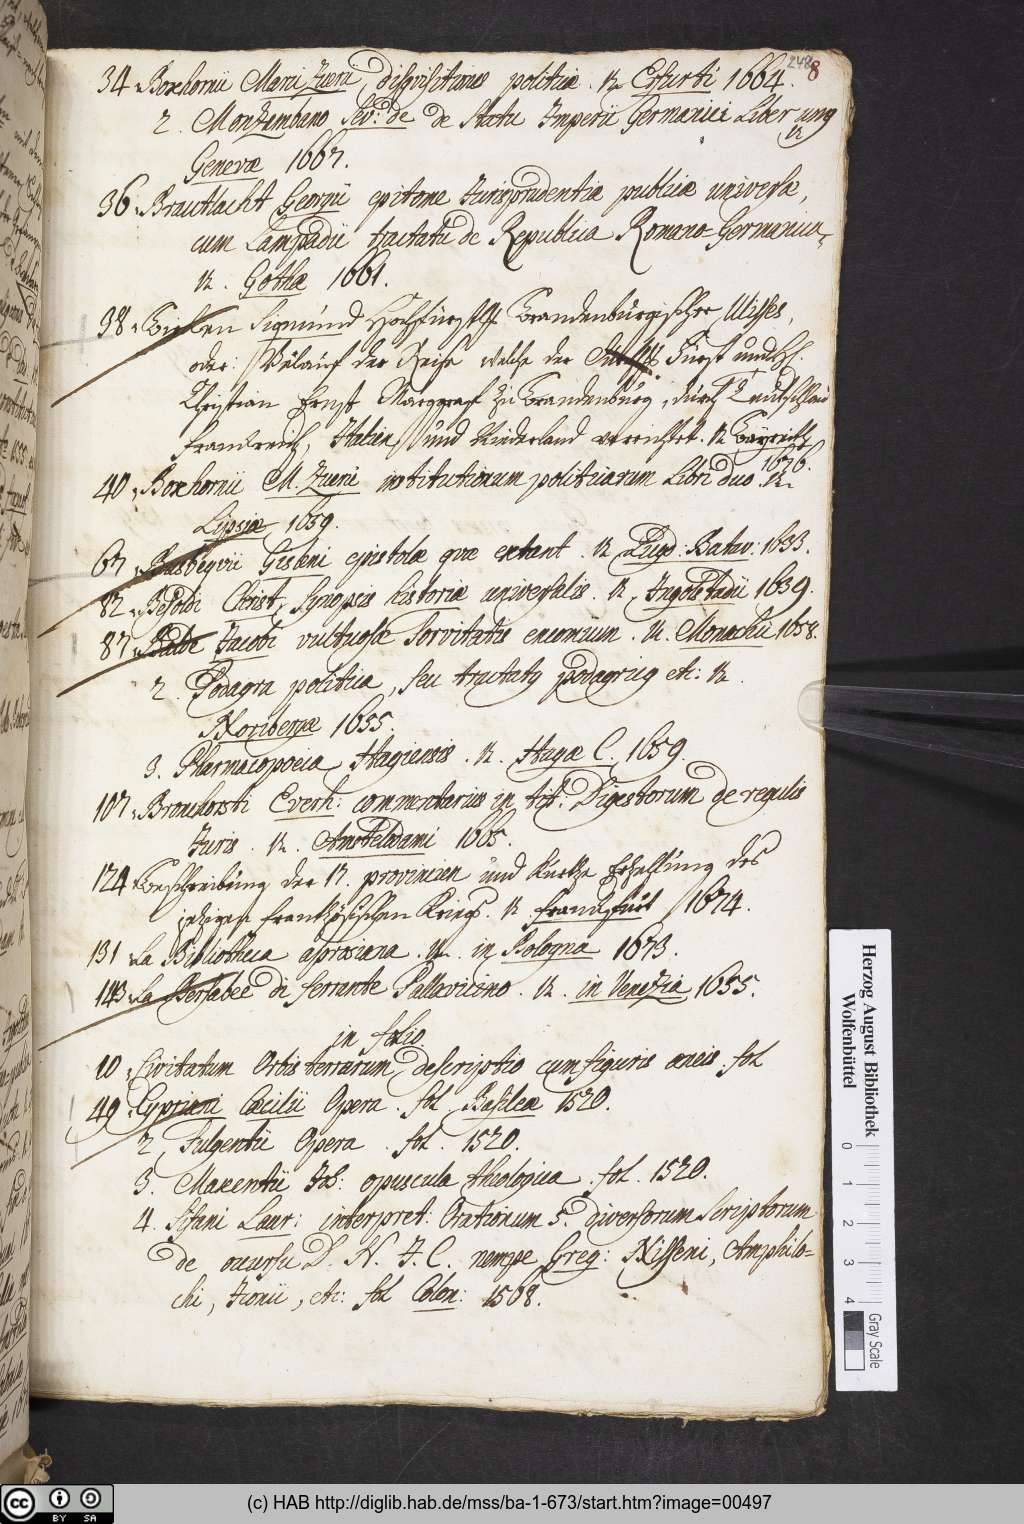 248 8
34. Boxhornii Marci Zueri, disquisitiones politicæ. 12. Erfurti 1664.
2. Monzambano Sev: de de Statu Imperii Germanici Liber ung
12
Genevæ 1667.
36. Brautlacht Georgii epitome Jurisprudentiæ publicæ universæ,
cum Lampadii tractatu de Republica Romano Germanica,
12. Gothæ 1661.
38. Birken Sigmund Hochfürstl. Brandenburgischer Ulisses,
oder: Verlauf der Reise welche der Fürst und H.
Christian Ernst Marggraf zu Brandenburg, durch Teutschland
Franckreich, Italien, und Niederland verrichtet. 12 Bayreith
1676.
40. Boxhornii M. Zueri institutionum politicarum Libri duo. 12.
Lipsiæ 1659.
67. Busbeqvii Gisleni epistolæ quæ extant. 12. Lugd: Batav: 1633.
82. Besoldi Christ, Synopsis historiæ universalis. 12. Ingolstadii 1639.
87. Balde Jacobi vultuosæ torvitatis encomium. 12. Monachii 1658.
2. Podagra politica, seu tractatg podagricg etc: 12.
Noribergæ 1655.
3. Pharmacopoeia Hagiensis. 12. Hagæ C. 1659.
107. Bronchorsti Everh: commentarius in tit: Digestorum de regulis
Juris. 12. Amstelodami 1665.
124. Beschreibung der 17. provincien und kurtze Erzehlung des
jetzigen frantzösischen Kriegs. 12. Franckfurt 1674.
131. La Bibliotheca aprosiana. 12. in Bologna 1673.
143. La Bersabee di ferrante Pallavicino. 12. in Venezia 1655.
in folio.
10. Civitatum Orbis terrarum descriptio cum figuris æneis. fol
49. Cypriani Cæcilii Opera. fol. Basileæ 1520.
2. Fulgentii Opera. fol. 1520.
3. Maxentii Joh: opuscula theologica. fol. 1520.
4. Sifani Laur: interpret: Orationum 5. diversorum Scriptorum
de occursu D. N. J. C. nempe Greg: Nisseni, Amphilo-
chi, etc: fol Colon: 1568.
Herzog August Bibliothek
Wolfenbüttel
0 1 2 3 4
Gray Scale
cc BY SA
(c) HAB http://diglib.hab.de/mss/ba-1-673/start.htm?image=00497